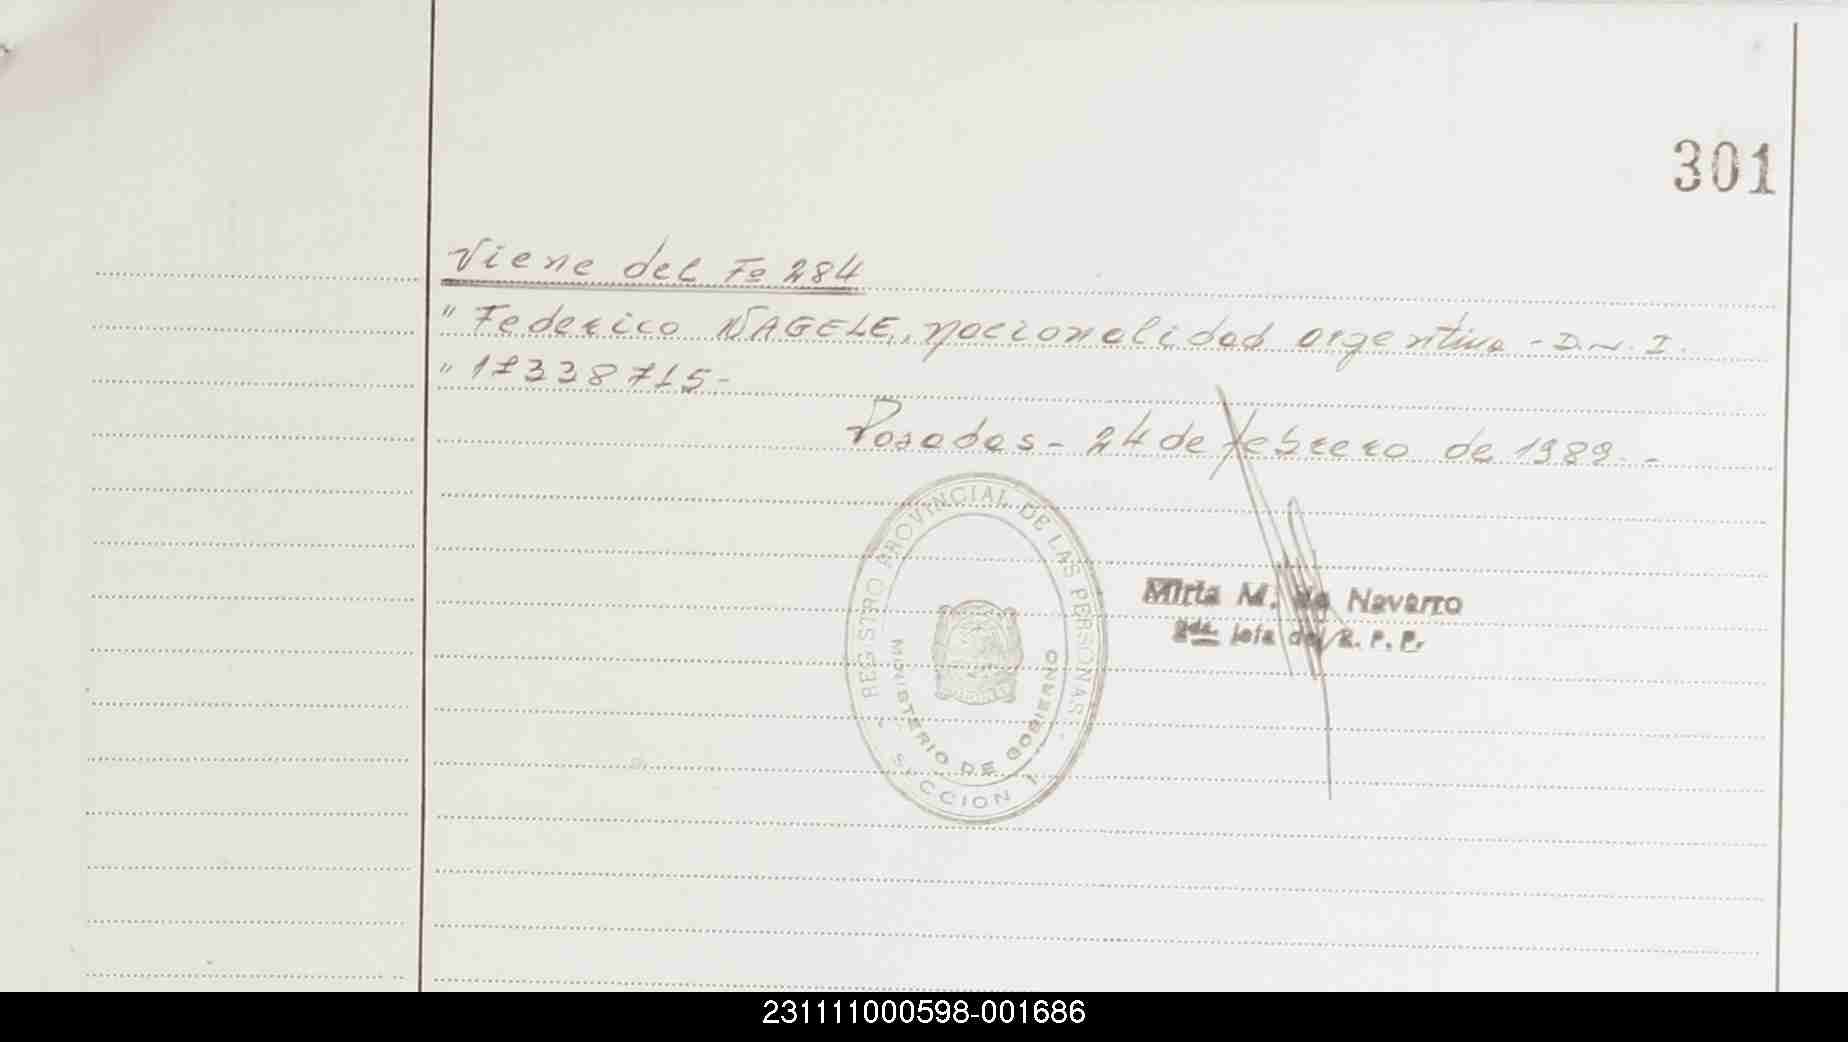 301
Viene del Fº 284
" Federico NAGELE, nacionalidad argentina - D.N.I.
" 17338715-
Posadas - 24 de febrero de 1989.-
REGISTRO PROVINCIAL DE LAS PERSONAS
MINISTERIO DE GOBIERNO
SECCION 1
Mirta M. de Navarro
2da. Jefa del R. P. P.
231111000598-001686